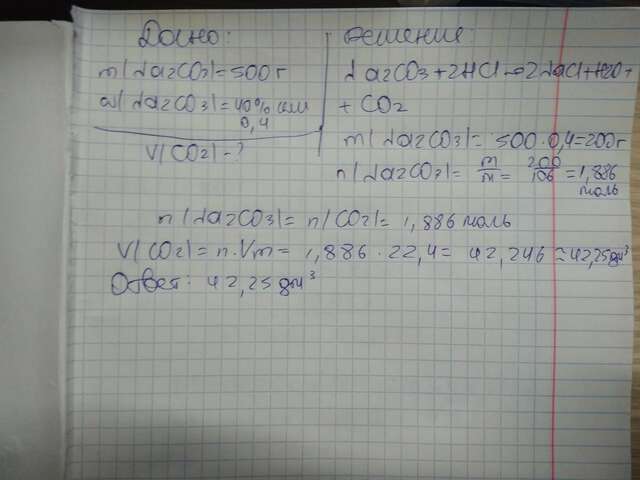 Дано:
m(Na2CO3)=500г
ω(Na2CO3)=40% или
0,4
V(CO2)-?
Решение:
Na2CO3+2HCl→2NaCl+H2O+
+ CO2
m(Na2CO3)= 500·0,4=200г
n(Na2CO3)= m/M = 200/106 =1,886
моль
n(Na2CO3)= n(CO2)= 1,886 моль
V(CO2)= n·Vm= 1,886·22,4= 42,246 ≈42,25дм³
Ответ: 42,25 дм³